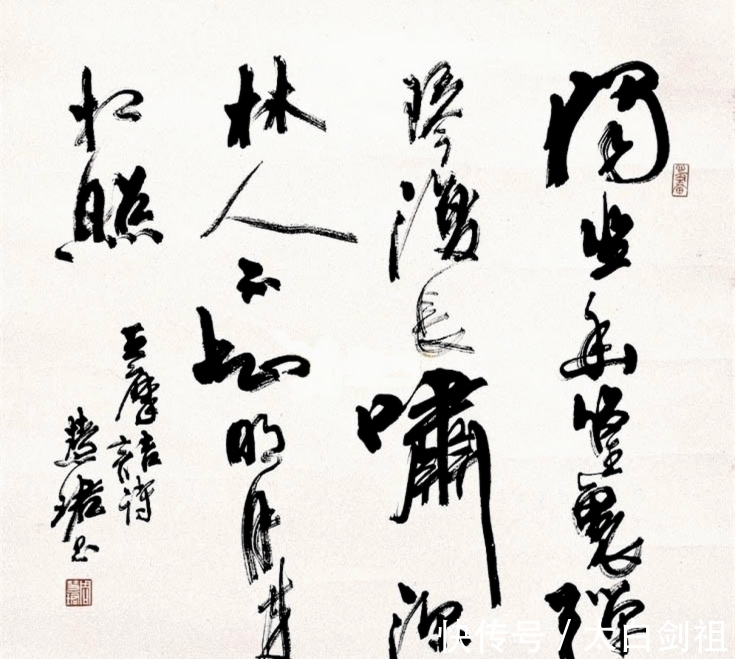 獨坐幽篁裏彈
琴復長嘯深
林人不知明月來
相照
王摩詰詩
慧珺書
快传号 / 太白剑祖